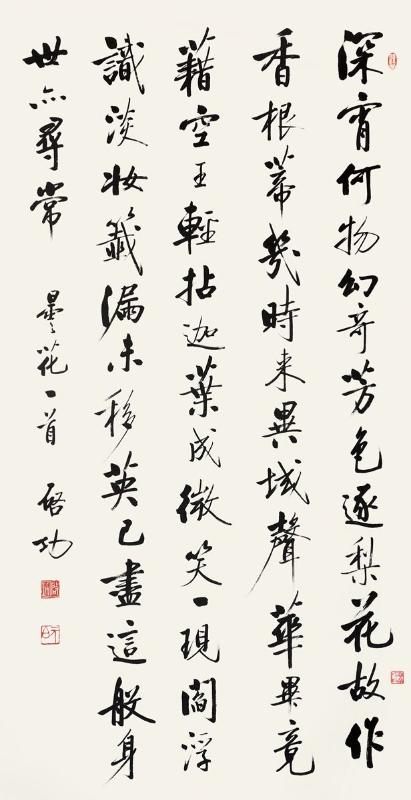 深宵何物幻奇芳色逐梨花故作
香根蒂幾時来異域聲華畢竟
藉空王輕拈迦葉成微笑一現閻浮
識淡妝籤漏未移英已盡這般身
世亦尋常
曇花一首
啓功